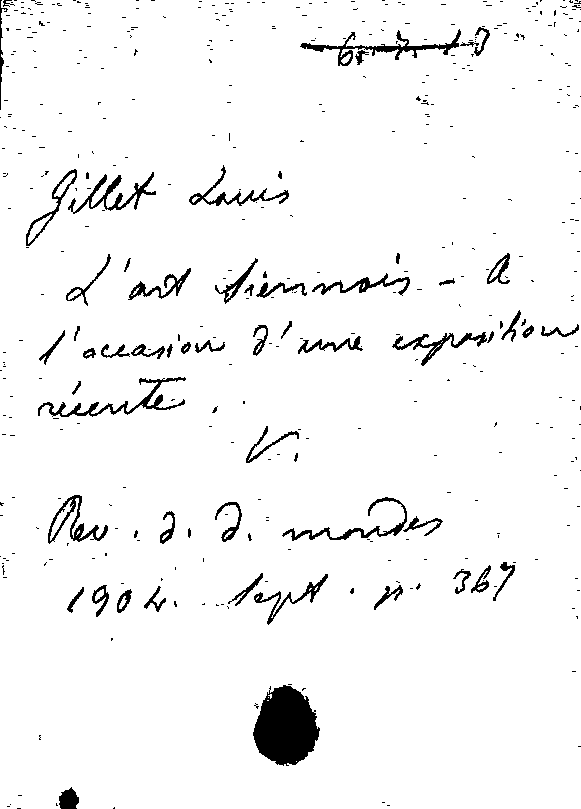 6. 7. 13
Gillet Louis
L'art siennois - A
l'occasion d'une exposition
récente.
V.
Rev. d. d. mondes
1904. sept. p. 367